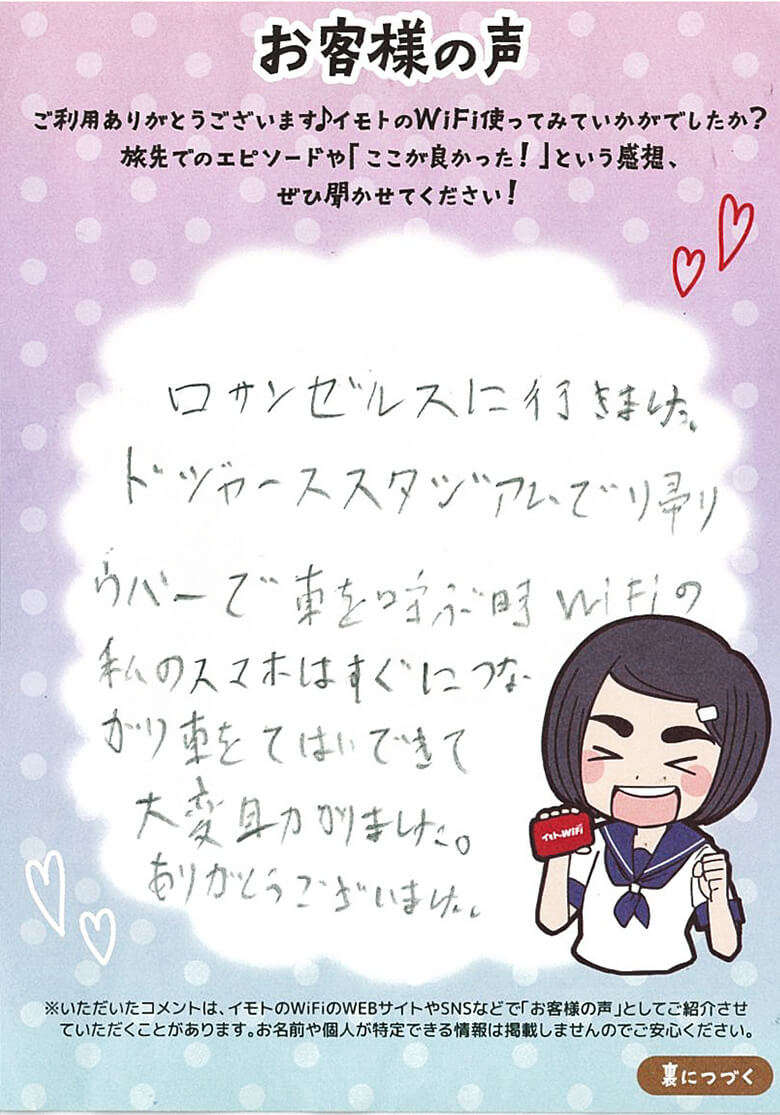 お客様の声
ご利用ありがとうございます♪イモトのWiFi使ってみていかがでしたか?
旅先でのエピソードや「ここが良かった!」という感想、
ぜひ聞かせてください!
ロサンゼルスに行きました。
ドジャーススタジアムでり帰り
ウバーで車を呼ぶ時WiFiの
私のスマホはすぐにつな
がり車をてはいできて
大変助かりました。
ありがとうございました。
イモトのWiFi
※いただいたコメントは、イモトのWiFiのWEBサイトやSNSなどで「お客様の声」としてご紹介させ
ていただくことがあります。お名前や個人が特定できる情報は掲載しませんのでご安心ください。
裏につづく